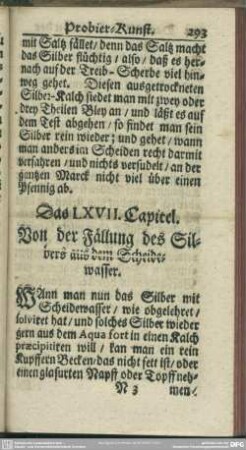 Probier-Kunst. 293
mit Saltz fället/ denn das Saltz macht
das Silber flüchtig/ also/ daß es her-
nach auf der Treib-Scherbe viel hin-
weg gehet. Diesen ausgetrockneten
Silber-Kalch siedet man mit zwey oder
drey Theilen Bley an/ und läßt es auf
dem Test abgehen/ so findet man sein
Silber rein wieder; und gehet/ wann
man anders im Scheiden recht darmit
verfahren/ und nichts versudelt/ an der
gantzen Marck nicht viel über einen
Pfennig ab.
Das LXVII. Capitel.
Von der Fällung des Sil-
bers aus dem Scheide-
wasser.
WAnn man nun das Silber mit
Scheidewasser/ wie obgelehret/
solviret hat/ und solches Silber wieder
gern aus dem Aqua fort in einen Kalch
præcipitiren will/ kan man ein rein
Kupffern Becken/ das nicht fett ist/ oder
einen glasurten Napff oder Topff neh-
N 3 men/